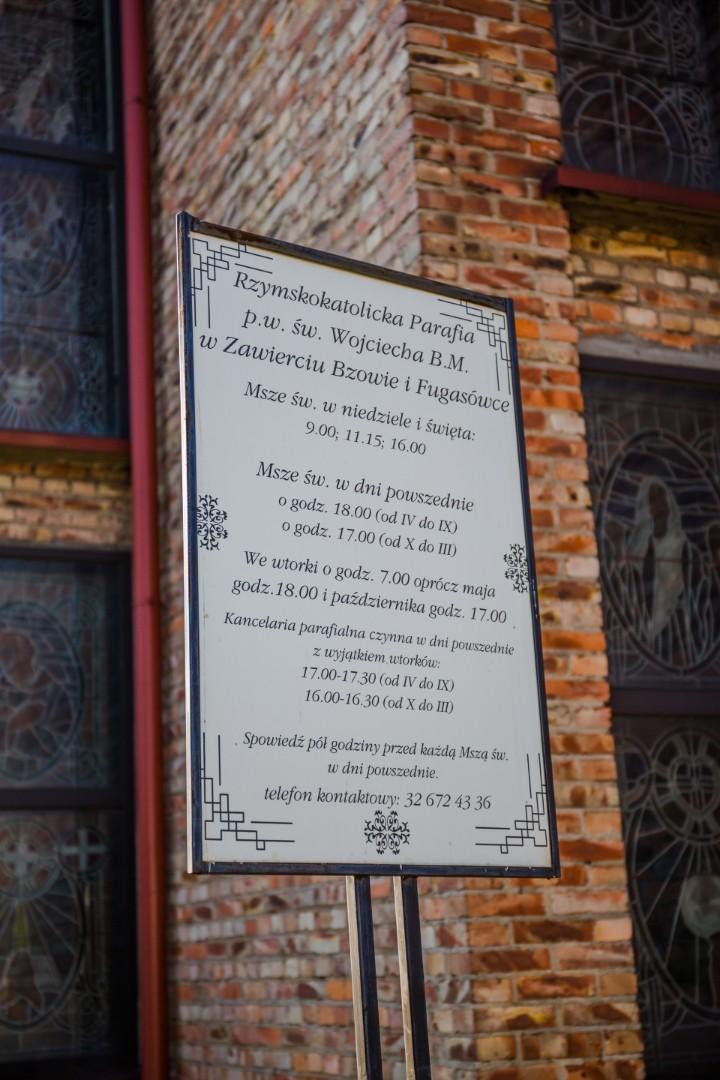 Rzymskokatolicka Parafia
p.w. św. Wojciecha B.M.
w Zawierciu Bzowie i Fugasówce
Msze św. w niedziele i święta:
9.00; 11.15; 16.00
Msze św. w dni powszednie
o godz. 18.00 (od IV do IX)
o godz. 17.00 (od X do III)
We wtorki o godz. 7.00 oprócz maja
godz.18.00 i października godz. 17.00
Kancelaria parafialna czynna w dni powszednie
z wyjątkiem wtorków:
17.00-17.30 (od IV do IX)
16.00-16.30 (od X do III)
Spowiedź pół godziny przed każdą Mszą św.
w dni powszednie.
telefon kontaktowy: 32 672 43 36